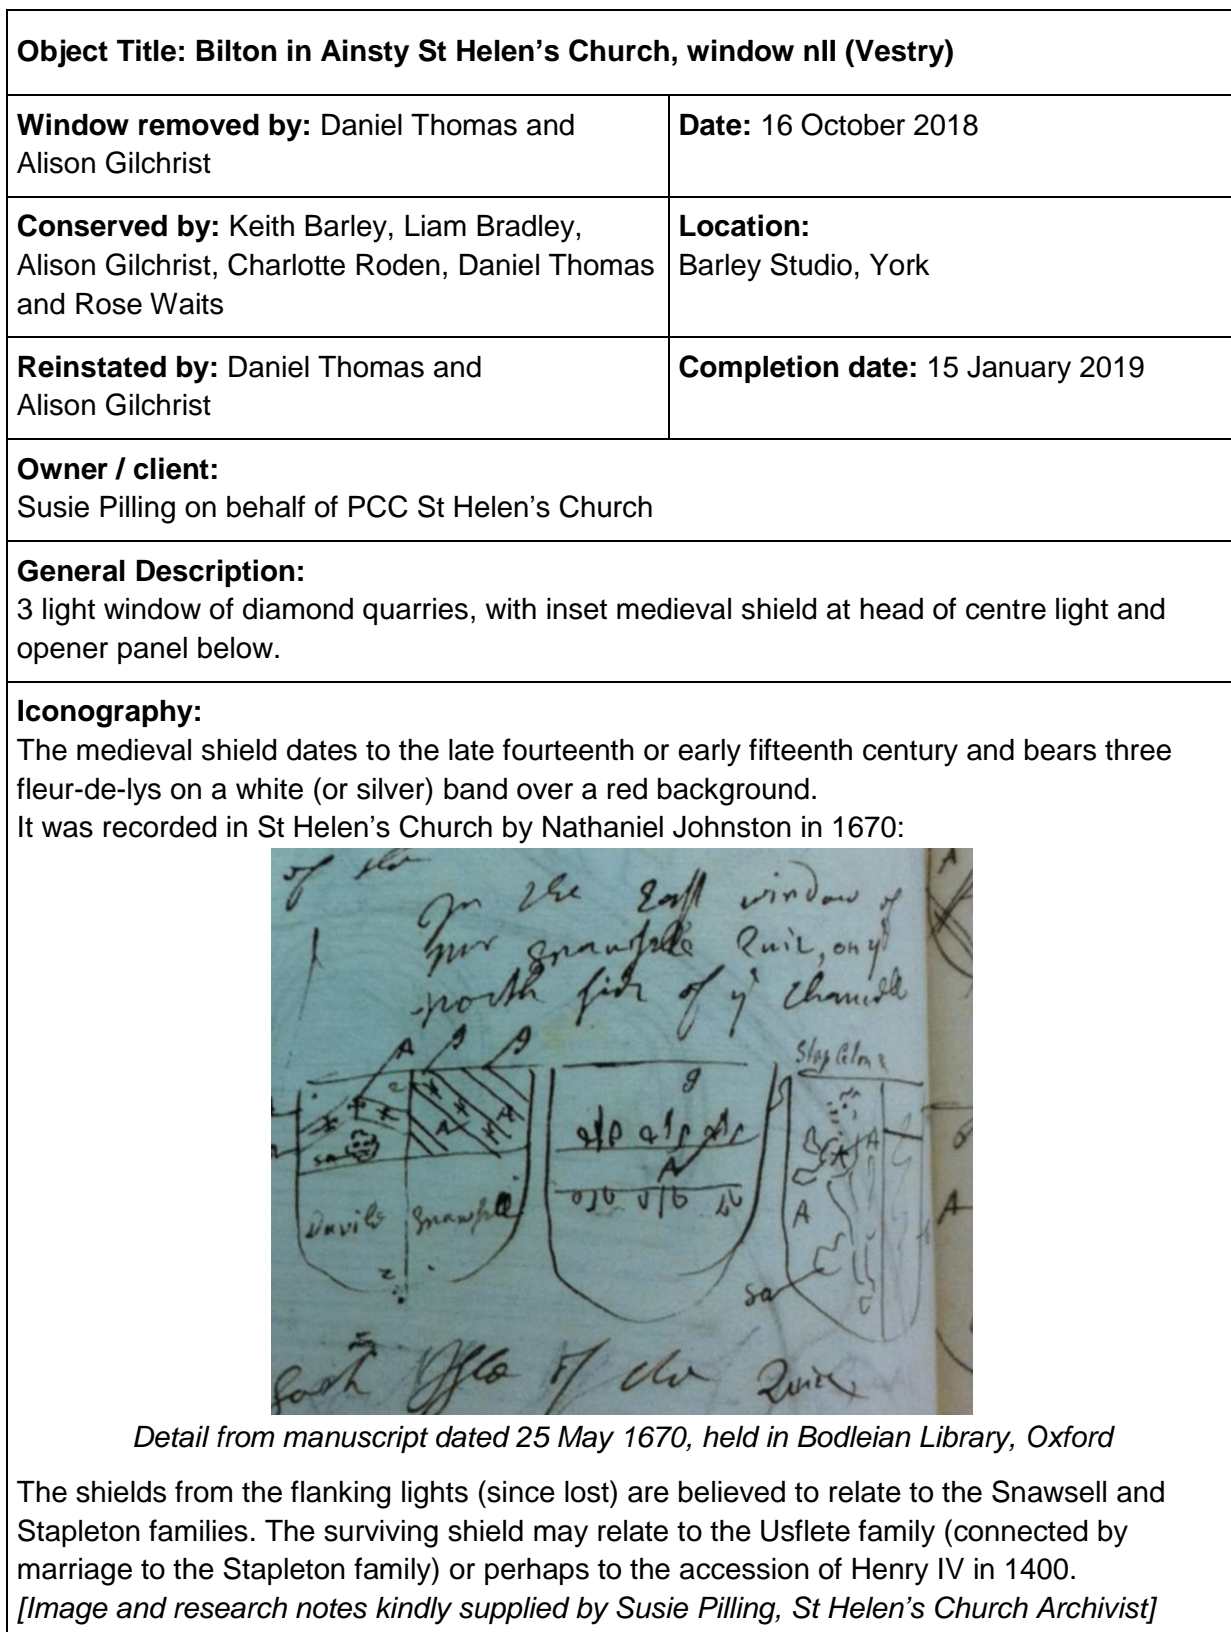 Object Title: Bilton in Ainsty St Helen’s Church, window nII (Vestry)
Window removed by: Daniel Thomas and
Alison Gilchrist
Date: 16 October 2018
Conserved by: Keith Barley, Liam Bradley,
Alison Gilchrist, Charlotte Roden, Daniel Thomas
and Rose Waits
Location:
Barley Studio, York
Reinstated by: Daniel Thomas and
Alison Gilchrist
Completion date: 15 January 2019
Owner / client:
Susie Pilling on behalf of PCC St Helen’s Church
General Description:
3 light window of diamond quarries, with inset medieval shield at head of centre light and
opener panel below.
Iconography:
The medieval shield dates to the late fourteenth or early fifteenth century and bears three
fleur-de-lys on a white (or silver) band over a red background.
It was recorded in St Helen’s Church by Nathaniel Johnston in 1670:
of
In the East window of
Quir, on yᵉ
north side of yᵉ Chancell
A
g
A
A
sa
A
A
A
sa
of
Detail from manuscript dated 25 May 1670, held in Bodleian Library, Oxford
The shields from the flanking lights (since lost) are believed to relate to the Snawsell and
Stapleton families. The surviving shield may relate to the Usflete family (connected by
marriage to the Stapleton family) or perhaps to the accession of Henry IV in 1400.
[Image and research notes kindly supplied by Susie Pilling, St Helen’s Church Archivist]